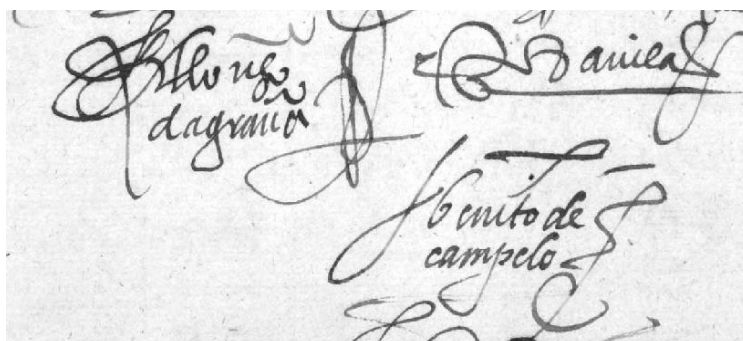 Alonso
dagrano
Davila
benito de
campelo